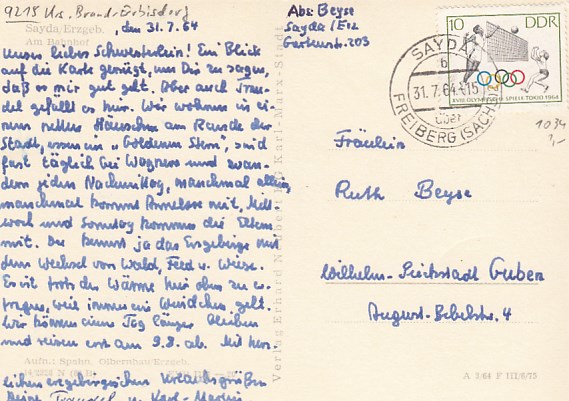 9218 Krs. Brand-Erbisdorf
Sayda/Erzgeb.
Am Bahnhof
, den 31.7.64
Unser liebes Schwesterlein! Ein Blick
auf die Karte genügt, um Dir zu sagen,
daß es mir gut geht. Aber auch Trau-
del gefällt es hier. Wir wohnen in ei-
nem netten Häuschen am Rande der
Stadt, essen im "Goldenen Stern", sind
fast täglich bei Wagners und wan-
dern jeden Nachmittag, manchmal allein,
manchmal kommt Annelose mit, Mitt-
woch und Sonntag kommen die Eltern
mit. Du kennst ja das Erzgebirge mit
dem Wechsel von Wald, Feld u. Wiese.
Es ist trotz der Wärme hier oben zu er-
tragen, weil immer ein Windchen geht.
Wir können einen Tag länger bleiben
und reisen erst am 9.8. ab. Mit herz-
Aufn.: Spahn, Olbernhau/Erzgeb.
lichen erzgebirgischen Urlaubsgrüßen
Deine Traudel u. Karl-Martin
Verlag Erhard Neubert Karl-Marx-Stadt
Abs: Beyse
Sayda/Erz
Gartenstr. 203
SAYDA
b
31.7.64-15
über
FREIBERG (SACHS) 2
10 DDR
XVIII. OLYMPISCHE SPIELE TOKIO 1964
1034
Fräulein
Ruth Beyse
Wilhelm-Pieckstadt Guben
August-Bebelstr. 4
A 2/64 F III/6/75